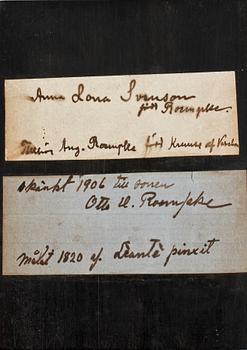 Anna Lona Svenson
född Roempke.
Aug. Roempke född Krause af
skänkt 1906 till sonen
Otto W. Roempke
Målat 1820 af pinxit